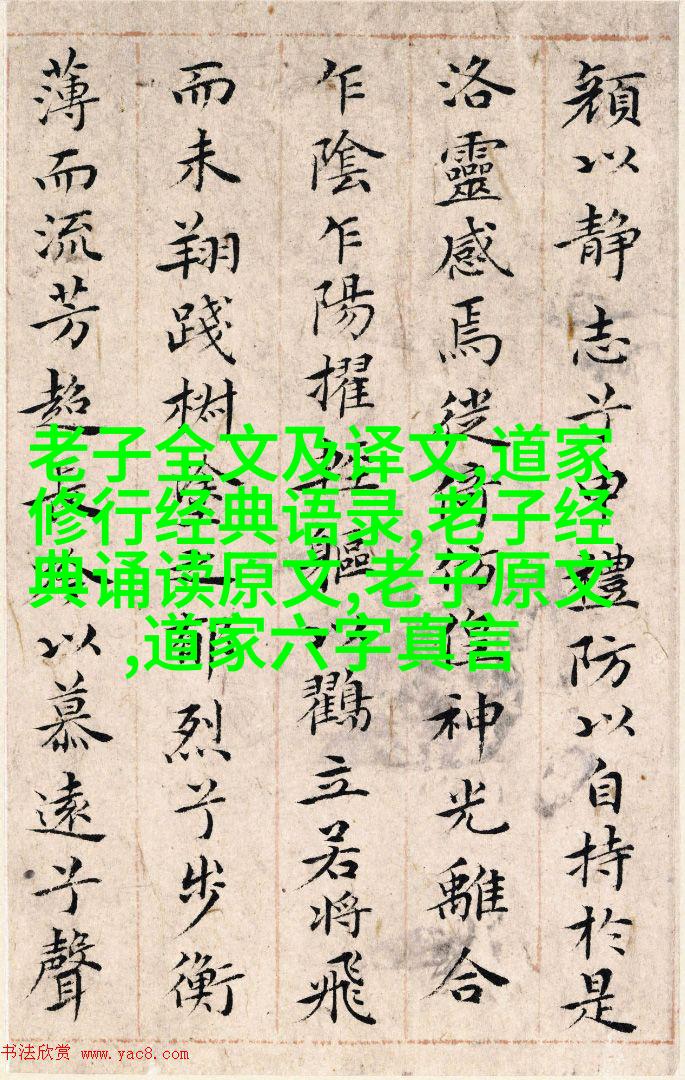 顏以静志兮申禮防以自持於是
洛靈感焉徙倚彷徨神光離合
乍陰乍陽擢輕軀以鶴立若将飛
而未翔踐椒塗之郁烈兮步衡
薄而流芳超長吟以慕遠兮聲
老子全文及译文,道家
修行经典语录,老子经
典诵读原文,老子原文
,道家六字真言
书法欣赏 www.yac8.com